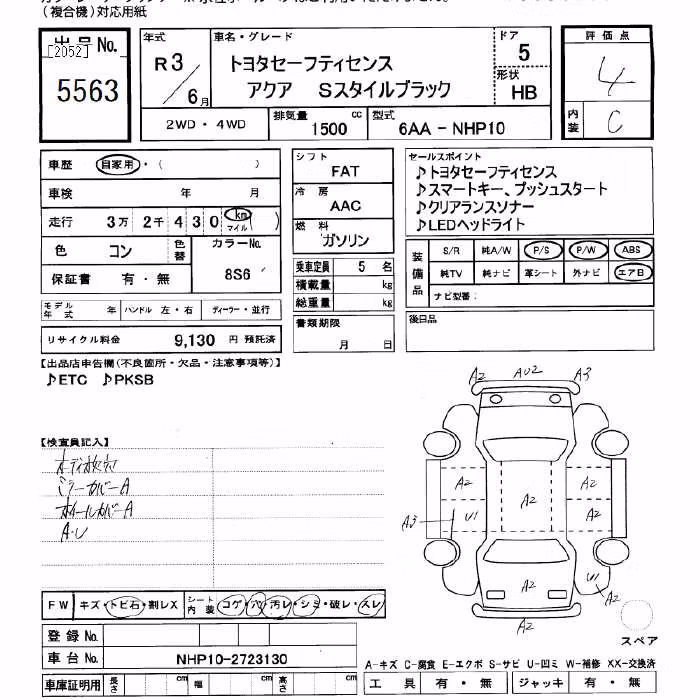 （複合機）対応用紙
出品No.
[2052]
5563
年式
R3/6月
車名・グレード
トヨタセーフティセンス
アクア Sスタイルブラック
ドア
5
形状
HB
評価点
4
内装
C
2WD・4WD
排気量
1500 cc
型式
6AA-NHP10
車歴 自家用・（ ）
車検 年 月
走行 3万 2千 4 3 0 km マイル ( )
色 コン
色替
カラーNo.
8S6
保証書 有・無
モデル年式 年 ハンドル 左・右 ディーラー・並行
リサイクル料金 9,130円 預託済
シフト
FAT
冷房
AAC
燃料
ガソリン
乗車定員 5 名
積載量 kg
総重量 kg
書類期限
月 日
セールスポイント
♪トヨタセーフティセンス
♪スマートキー、プッシュスタート
♪クリアランスソナー
♪LEDヘッドライト
装備品
S/R 純A/W P/S P/W ABS
純TV 純ナビ 革シート 外ナビ エアB
ナビ型番：
後日品
【出品店申告欄（不良箇所・欠品・注意事項等）】
♪ETC ♪PKSB
【検査員記入】
ミラーカバーA
ホイールカバーA
A・U
A2 A02 A3
A2 A2
A2
A2 A2
A3 U1
A2
U1 A2
A2
スペア
FW キズ・トビ石・割レX
シート内装 コゲ・穴・汚レ・シミ・破レ・スレ
登録No.
車台No. NHP10-2723130
車庫証明用 長さ cm 幅 cm 高さ cm
A-キズ C-腐食 E-エクボ S-サビ U-凹ミ W-補修 XX-交換済
工具 有・無 ジャッキ 有・無